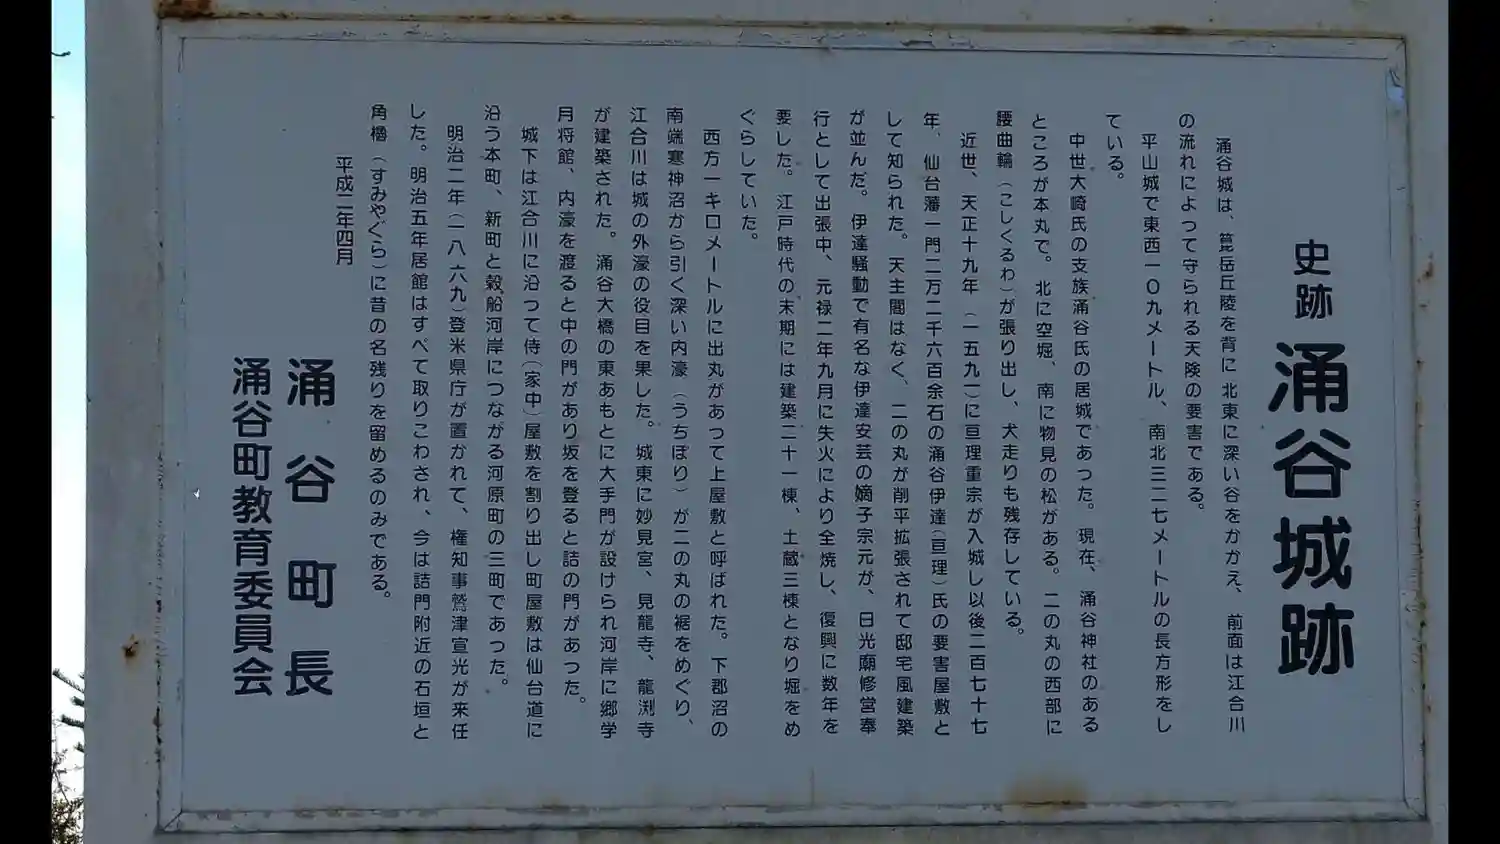 史跡 涌谷城跡
涌谷城は、箟岳丘陵を背に 北東に深い谷をかかえ、前面は江合川
の流れによって守られる天険の要害である。
平山城で東西一〇九メートル、南北三二七メートルの長方形をし
ている。
中世大崎氏の支族涌谷氏の居城であった。現在、涌谷神社のある
ところが本丸で。北に空堀、南に物見の松がある。二の丸の西部に
腰曲輪（こしくるわ）が張り出し、犬走りも残存している。
近世、天正十九年（一五九一）に亘理重宗が入城し以後二百七十七
年、仙台藩一門二万二千六百余石の涌谷伊達（亘理）氏の要害屋敷と
して知られた。天主閣はなく、二の丸が削平拡張されて邸宅風建築
が並んだ。伊達騒動で有名な伊達安芸の嫡子宗元が、日光廟修営奉
行として出張中、元禄二年九月に失火により全焼し、復興に数年を
要した。江戸時代の末期には建築二十一棟、土蔵三棟となり堀をめ
ぐらしていた。
西方一キロメートルに出丸があって上屋敷と呼ばれた。下郡沼の
南端寒神沼から引く深い内濠（うちぼり）が二の丸の裾をめぐり、
江合川は城の外濠の役目を果した。城東に妙見宮、見龍寺、龍渕寺
が建築された。涌谷大橋の東あもとに大手門が設けられ河岸に郷学
月将館、内濠を渡ると中の門があり坂を登ると詰の門があった。
城下は江合川に沿って侍（家中）屋敷を割り出し町屋敷は仙台道に
沿う本町、新町と穀船河岸につながる河原町の三町であった。
明治二年（一八六九）登米県庁が置かれて、権知事鷲津宣光が来任
した。明治五年居館はすべて取りこわされ、今は詰門附近の石垣と
角櫓（すみやぐら）に昔の名残りを留めるのみである。
平成二年四月
涌谷町長
涌谷町教育委員会